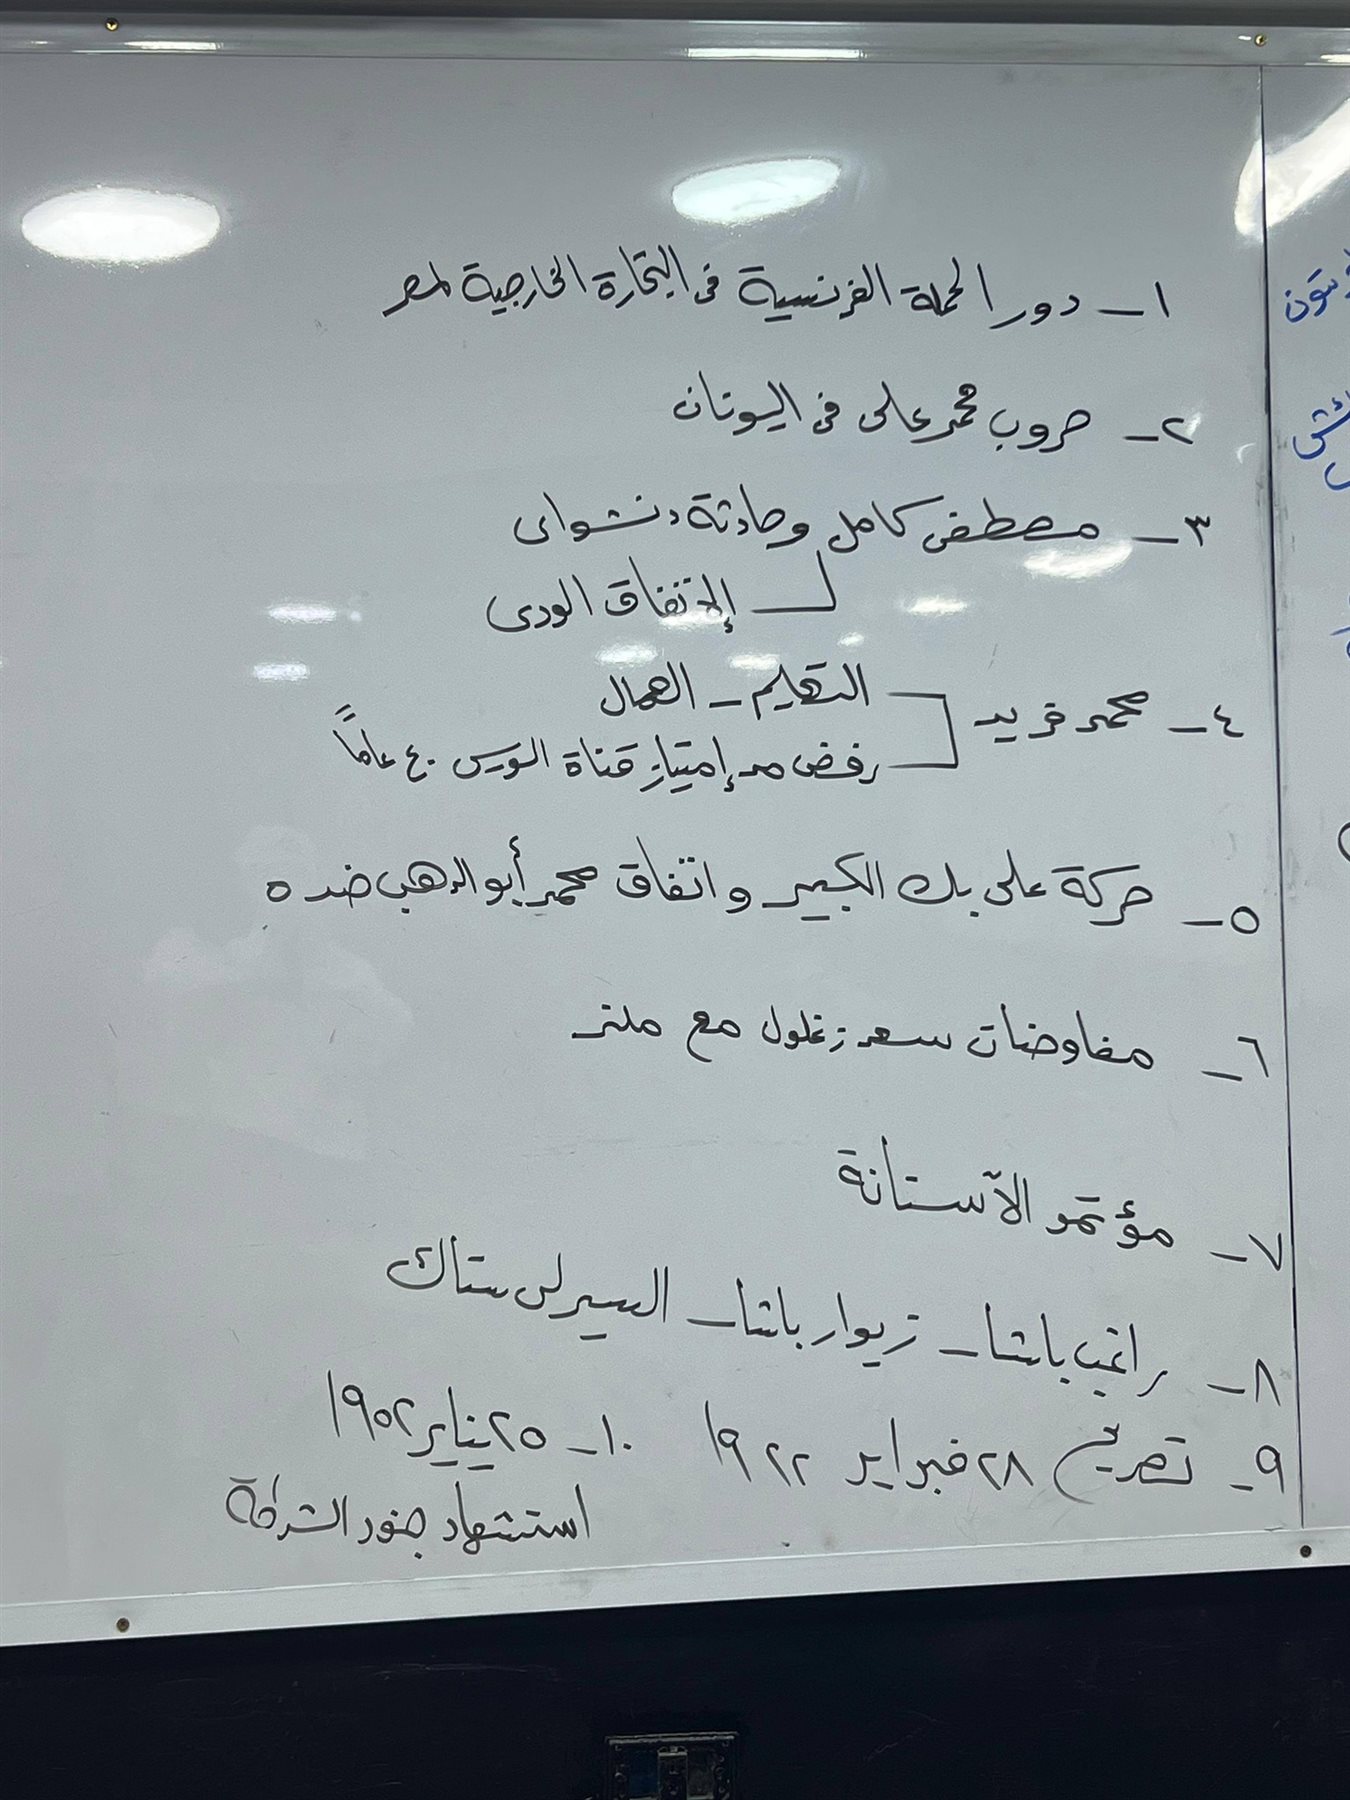 ١- دور الحملة الفرنسية فى التجارة الخارجية لمصر
٢- حروب محمد على فى اليونان
٣- مصطفى كامل وحادثة دنشواى
الإتفاق الودى
٤- محمد فريد
التعليم - العمال
رفض مد إمتياز قناة السويس ٤٠ عاماً
٥- حركة على بك الكبير واتفاق محمد أبو الدهب ضده
٦- مفاوضات سعد زغلول مع ملنر
٧- مؤتمر الآستانة
٨- راغب باشا - زيوار باشا - السير لى ستاك
٩- تصريح ٢٨ فبراير ١٩٢٢
١٠- ٢٥ يناير ١٩٥٢
استشهاد جنود الشرطة